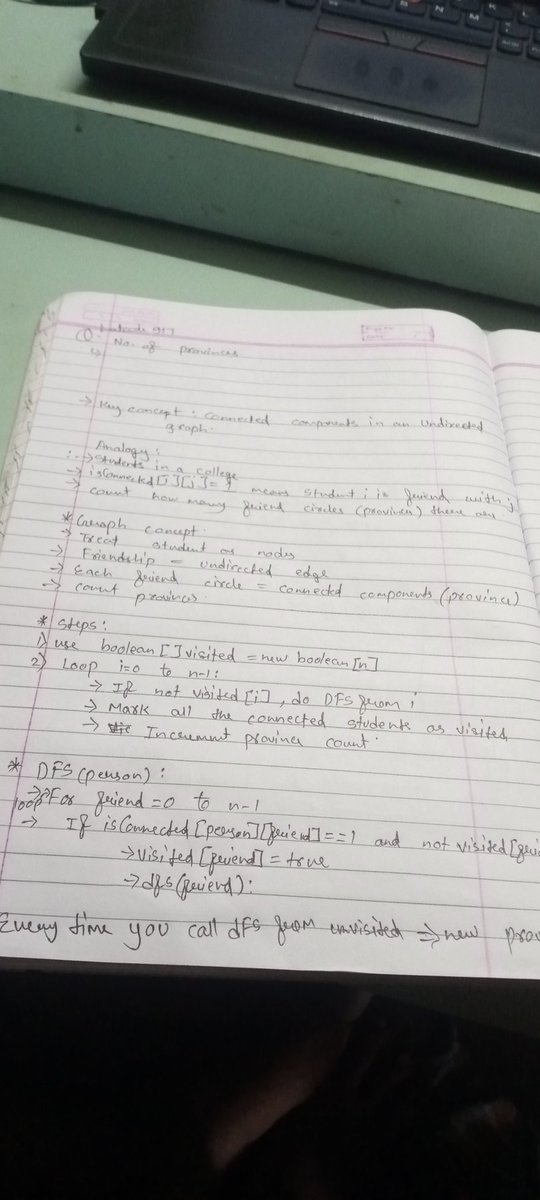 Q. Leetcode 547
↳ No. of provinces
→ Key concept : connected components in an undirected
graph.
Analogy :
:→ Students in a college
→ isConnected[i][j]=1 means student i is friend with j
→ count how many friend circles (province) there are
* Graph concept.
→ Treat student as nodes
→ Friendship = undirected edge
→ Each friend circle = connected components (province)
→ count provinces.
* Steps :
1) use boolean[] visited = new boolean[n]
2) Loop i=0 to n-1 :
→ If not visited[i], do DFS from i
→ Mark all the connected students as visited
→ Increment province count.
* DFS (person) :
loop → For friend = 0 to n-1
→ If isConnected[person][friend]==1 and not visited[frie
→ visited[friend] = true
→ dfs(friend):
Every time you call dfs from unvisited ⇒ new prov